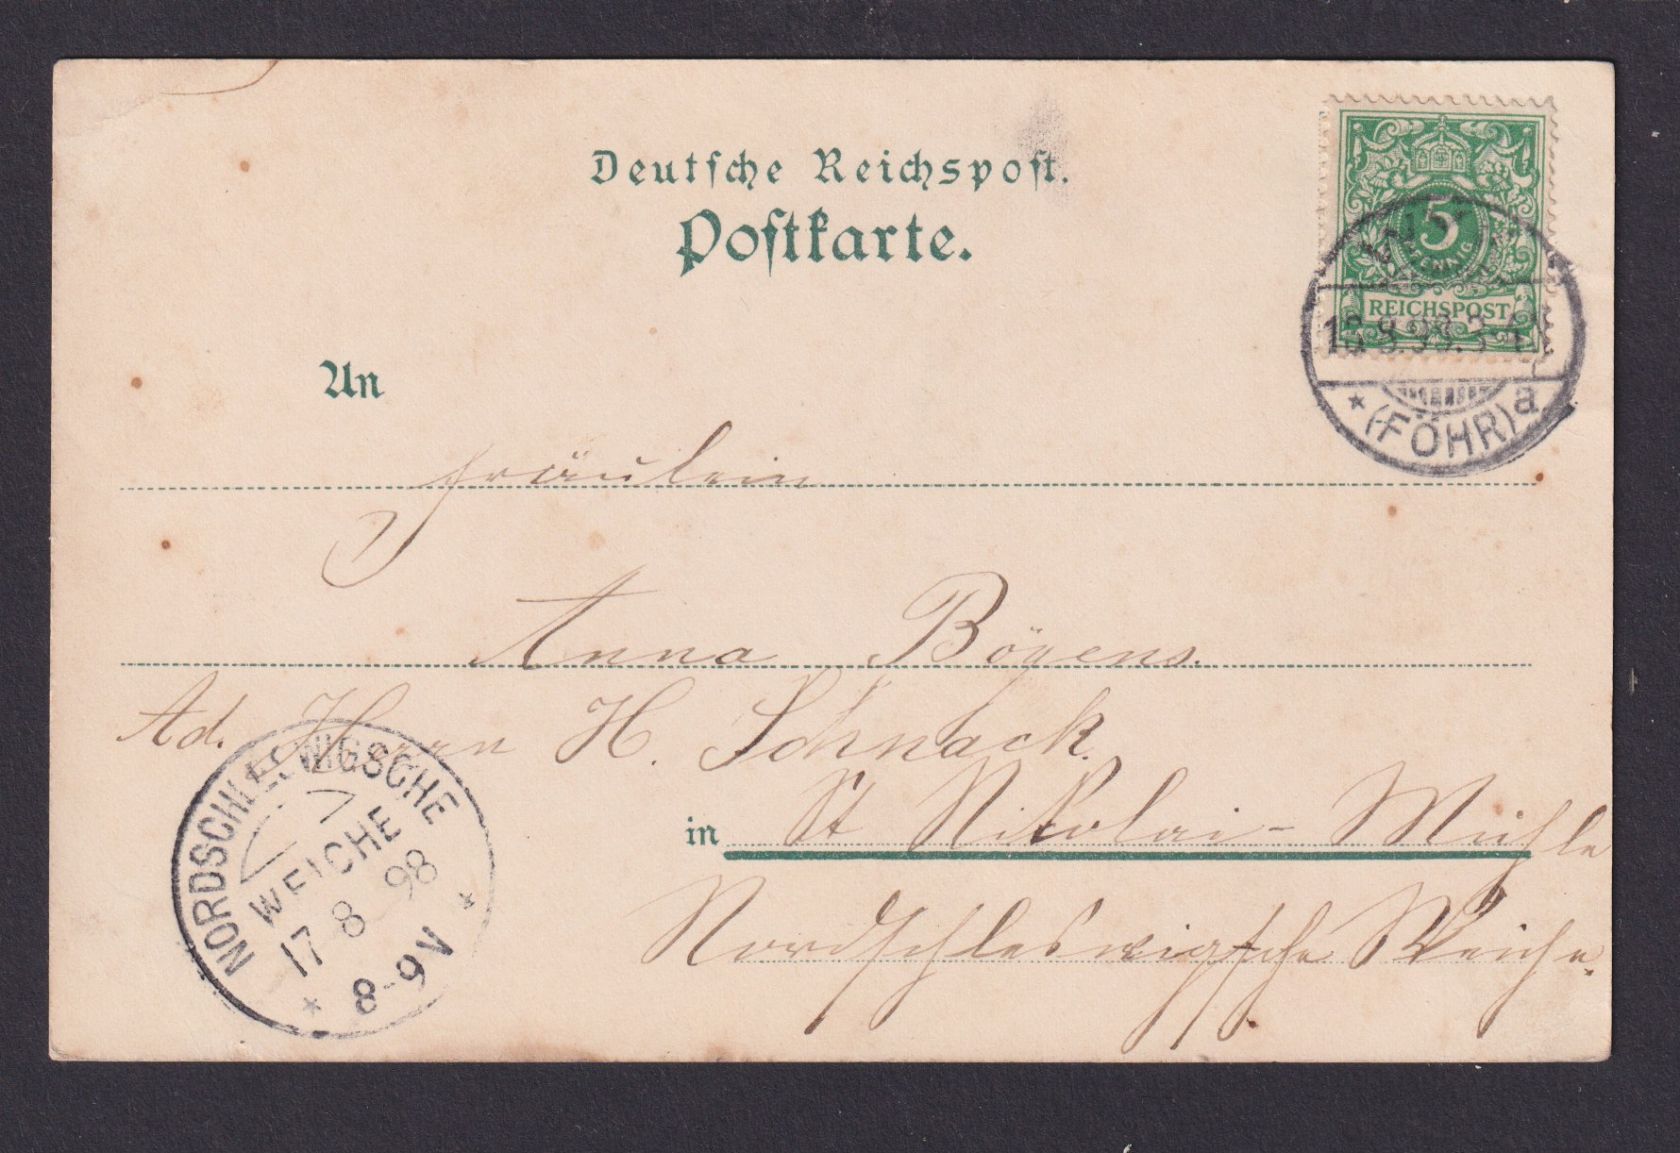 Deutsche Reichspost.
Postkarte.
5
PFENNIG
REICHSPOST
(FÖHR) a
An
Fräulein
Anna Böyens.
Ad. Herrn H. Schnack.
in St Nikolai-Mühle
Nordschleswigsche Weiche.
NORDSCHLESWIGSCHE
WEICHE
17 8 98
8-9V